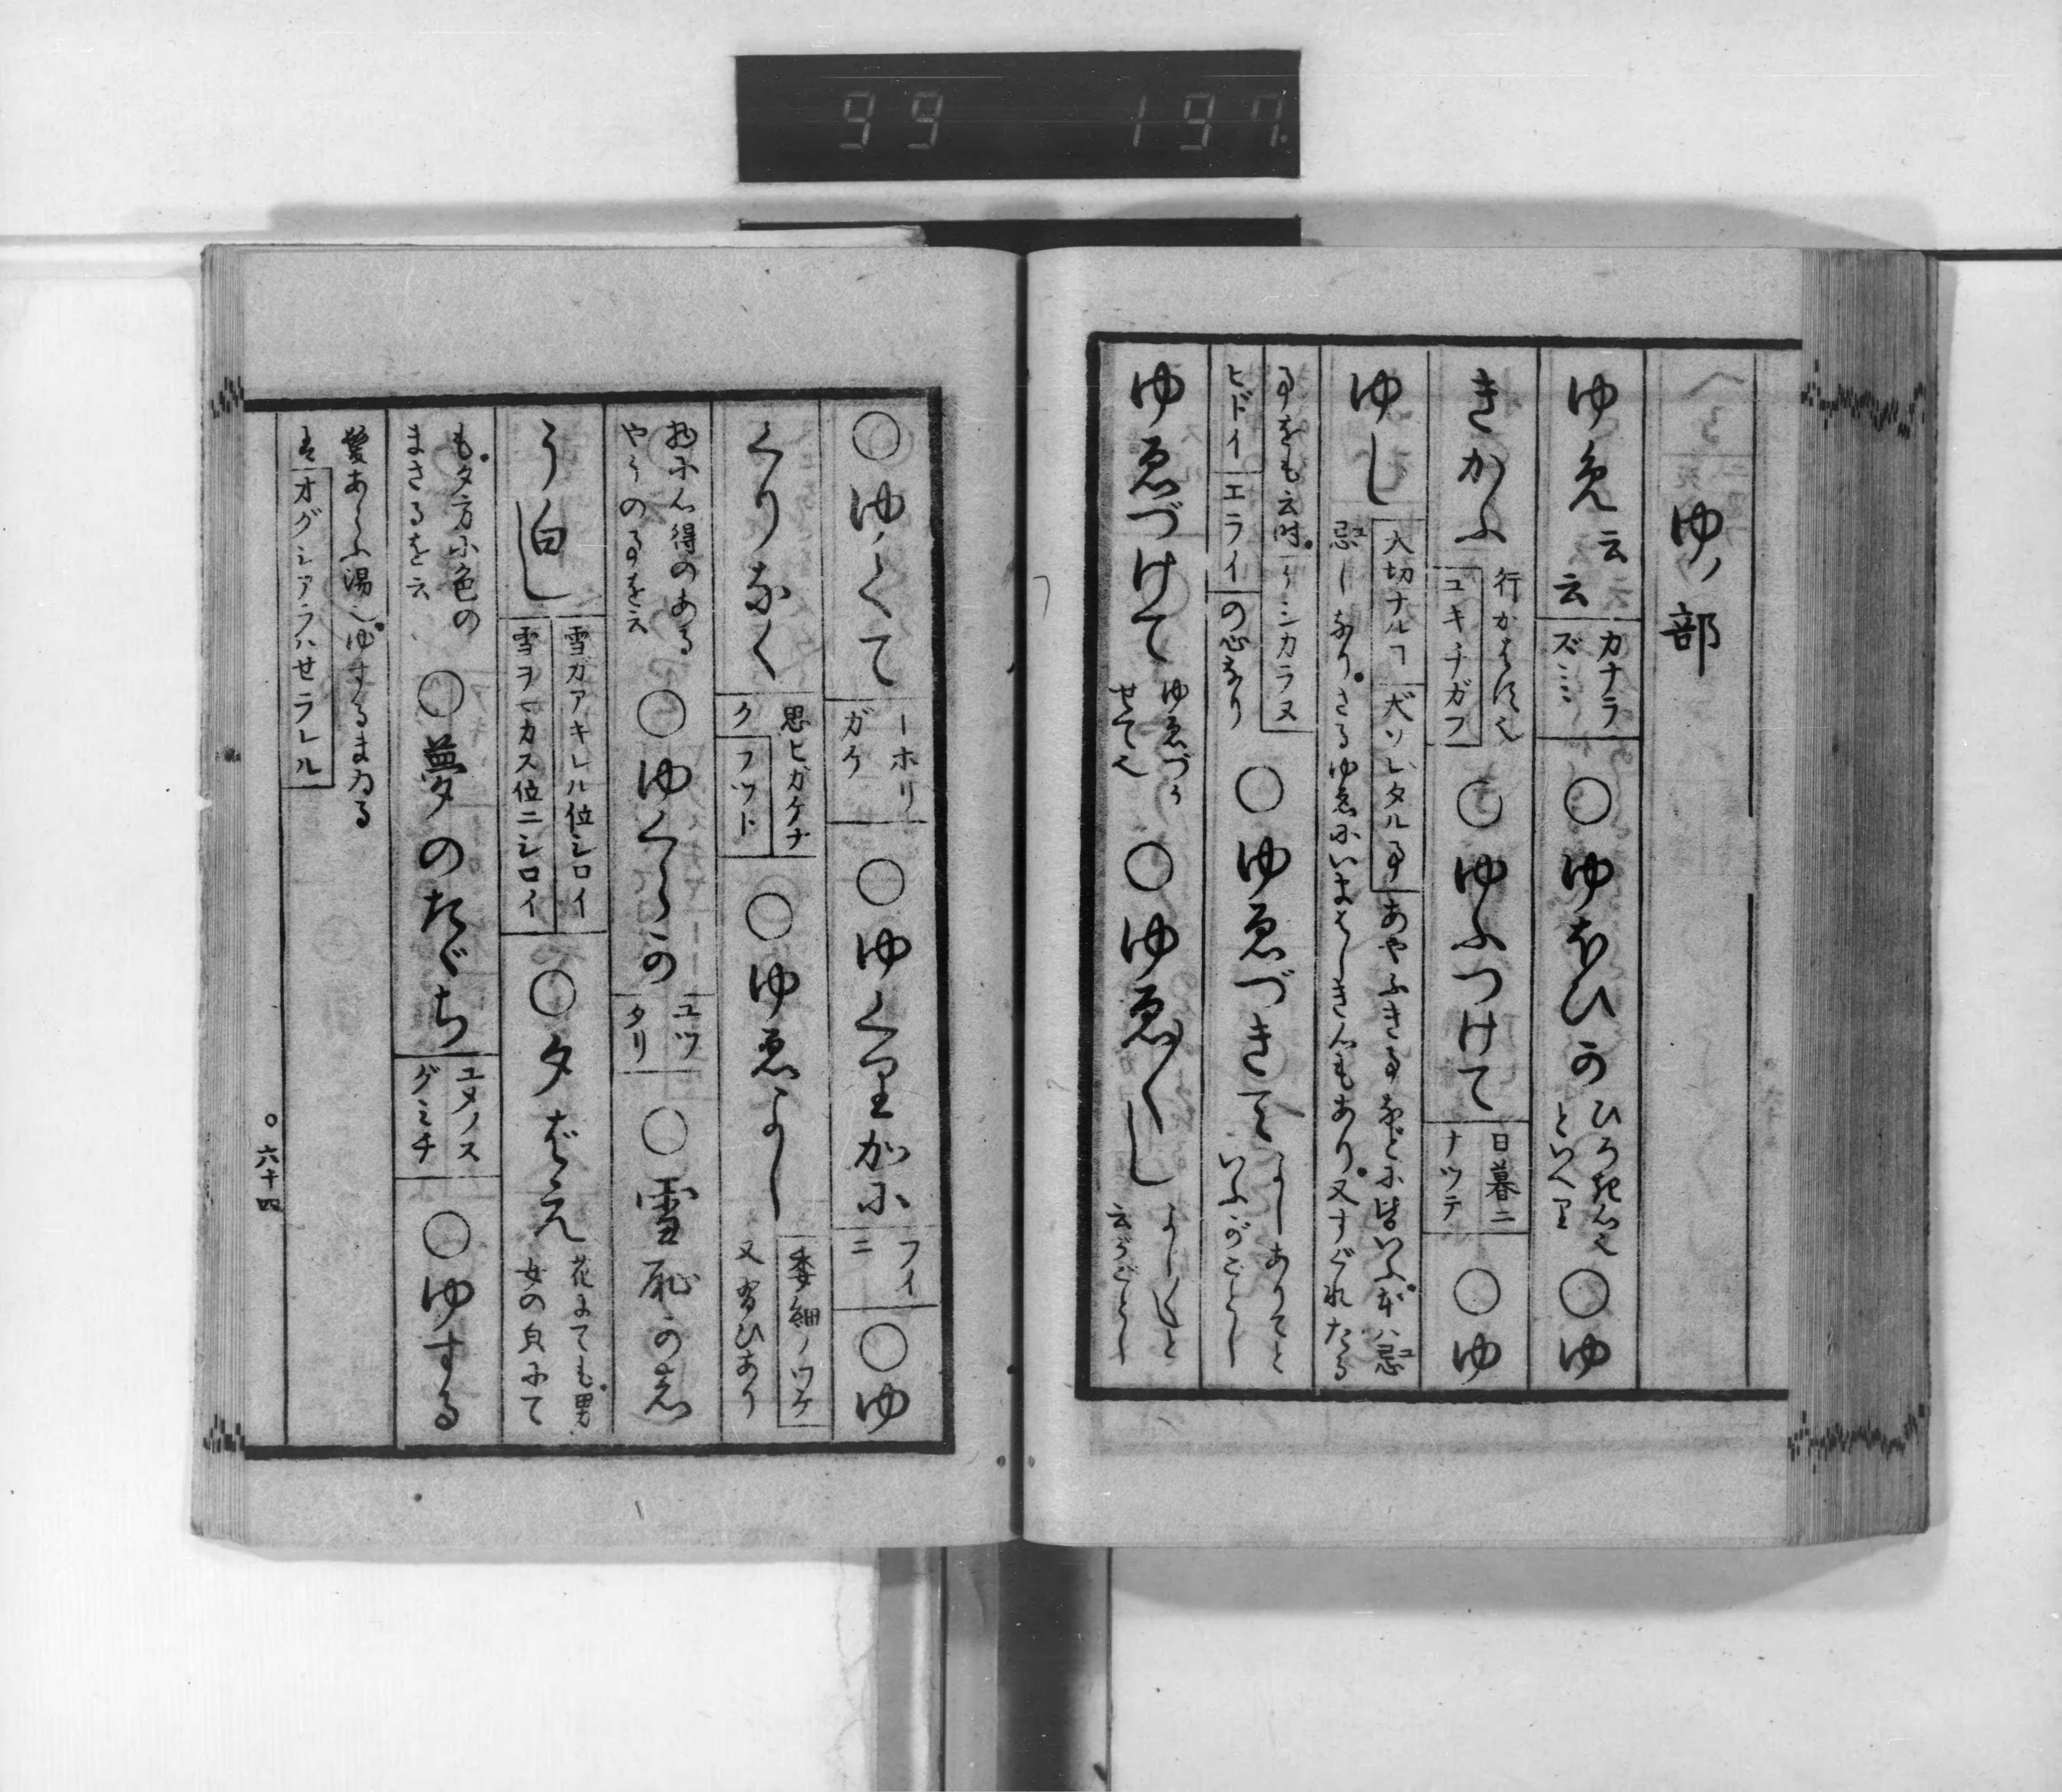 99 197.
ゆノ部
ゆめ云云 カナラズ…… ○ゆほひか ひろき心也といへり ○ゆ
きかふ 行かはす也 ユキチガフ ○ゆふつけて 日暮ニナツテ ○ゆ
ゆし 大切ナルヿ 大ソレタル事 あやふき事などに皆いふ本ハ忌
忌しなり さるゆゑにいまはしき心もあり 又すぐれたる
事をも云時 シカラヌ
ヒドイ エライ の心なり ○ゆゑづきて よしありてといふがごとし
ゆゑづけて ゆゑづかせて也 ○ゆゑ〳〵し よし〳〵しと云がごとし
○ゆくて ーホリガケ ○ゆくりかに フイニ ○ゆ
くりなく 思ヒガケナク フツト ○ゆゑよし 委細ノワケ 又習ひあり
物に心得のある
やうの事を云 ○ゆくらか ユツタリ ○雪恥かし
う白し 雪ガアキレル位シロイ 雪ヲマカス位ニシロイ ○夕ばえ 花にても男女の貝にて
も夕方に色の
まさるを云 ○夢のたゞち ユメノスグミチ ○ゆする
髪あらふ湯也ゆするまゐる
は オグシアラハせラレル
六十四